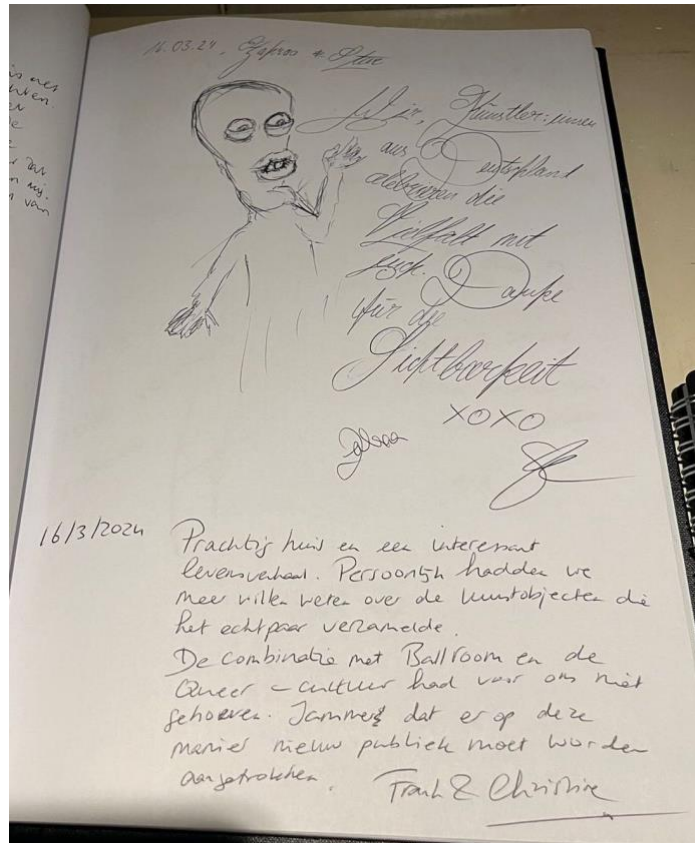 16.03.24,
Wir, Künstler:innen
aus Deutschland
zelebrieren die
Vielfalt mit
euch. Danke
für die
Sichtbarkeit
XOXO
16/3/2024
Prachtig huis en een interessant
levensverhaal. Persoonlijk hadden we
meer willen weten over de kunstobjecten die
het echtpaar verzamelde.
De combinatie met Ballroom en de
Queer-cultuur had voor ons niet
gehoeven. Jammer dat er op deze
manier nieuw publiek moet worden
aangetrokken.
Frank & Christine